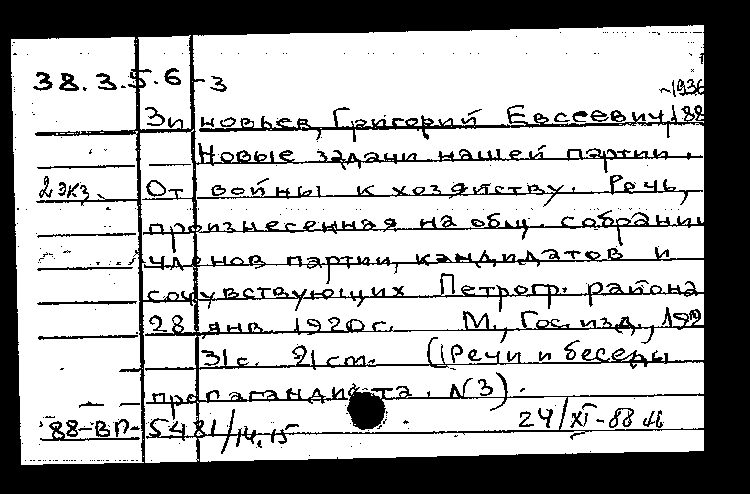 38.3.5.6-3
-1936
Зиновьев, Григорий Евсеевич, 188
Новые задачи нашей партии.
2 экз. От войны к хозяйству. Речь,
произнесенная на общ. собрании
членов партии, кандидатов и
сочувствующих Петрогр. района
28 янв. 1920 г. М., Гос. изд.,
31 с. 21 см. (Речи и беседы
пропагандиста. N3).
88-ВП-5481/14,15 24/XI-88